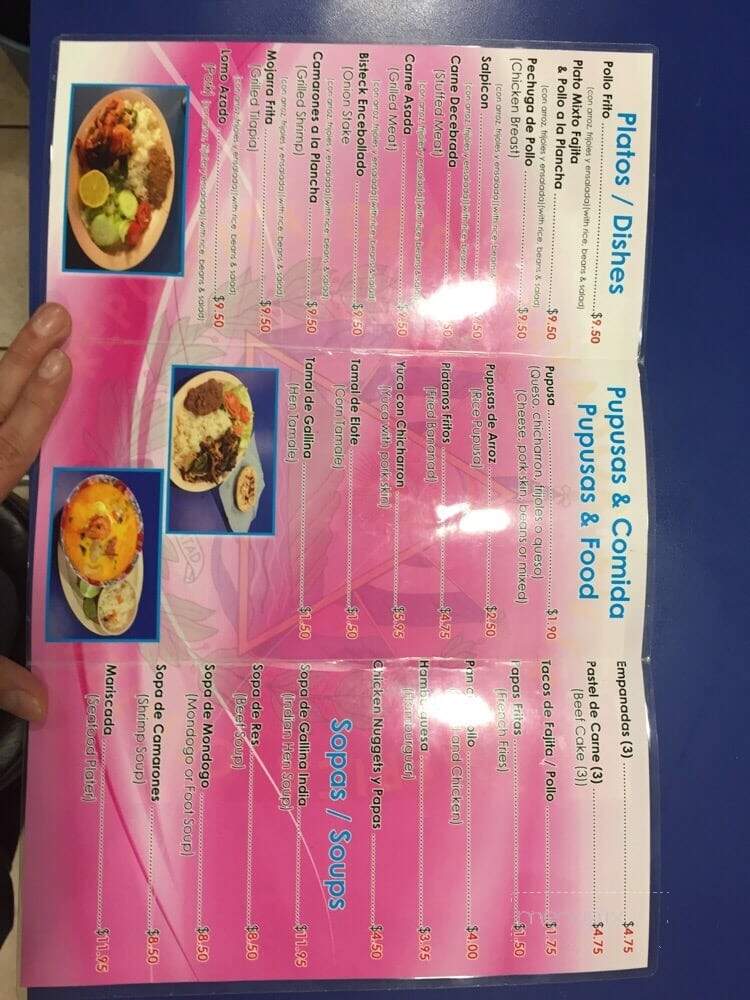 Platos / Dishes
Pollo Frito $9.50
(con arroz, frijoles y ensalada)(with rice, beans & salad)
Plato Mixto Fajita
& Pollo a la Plancha $9.50
(con arroz, frijoles y ensalada)(with rice, beans & salad)
Pechuga de Pollo $9.50
(Chicken Breast)
(con arroz, frijoles y ensalada)(with rice, beans
Salpicon
(con arroz, frijoles y ensalada)(with rice, beans
Carne Decebrada
(Stuffed Meat)
(con arroz, frijoles y ensalada)(with rice, beans
Carne Asada $9.50
(Grilled Meat)
(con arroz, frijoles y ensalada)(with rice, beans & salad)
Bisteck Encebollado $9.50
(Onion Stake
(con arroz, frijoles y ensalada)(with rice, beans & salad)
Camarones a la Plancha $9.50
(Grilled Shrimp)
(con arroz, frijoles y ensalada)(with rice, beans & salad)
Mojarra Frita $9.50
(Grilled Tilapia)
(con arroz, frijoles y ensalada)(with rice, beans & salad)
Lomo Azado $9.50
(Pork) (con arroz, frijoles y ensalada)(with rice, beans & salad)
Pupusas & Comida
Pupusas & Food
Pupusa $1.90
(Queso, chicharron, frijoles o queso)
(Cheese, pork skin, beans or mixed)
Pupusas de Arroz $2.50
(Rice Pupusa)
Platanos Fritos $4.75
(Fried Bananad)
Yuca con Chicharron $5.95
(Yuca with pork skin)
Tamal de Elote $1.50
(Corn Tamale)
Tamal de Gallina $1.50
(Hen Tamale)
Empanadas (3) $4.75
Pastel de Carne (3) $4.75
(Beef Cake (3))
Tacos de Fajita / Pollo $1.75
Papas Fritas $1.50
(French Fries)
Pan $4.00
and Chicken)
$3.95
Chicken Nuggets y Papas $4.50
Sopas / Soups
Sopa de Gallina India $11.95
(Indian Hen Soup)
Sopa de Res $8.50
(Beef Soup)
Sopa de Mondogo $8.50
(Mondogo or Foot Soup)
Sopa de Camarones $8.50
(Shrimp Soup)
Mariscada $11.95
(Seafood Plater)